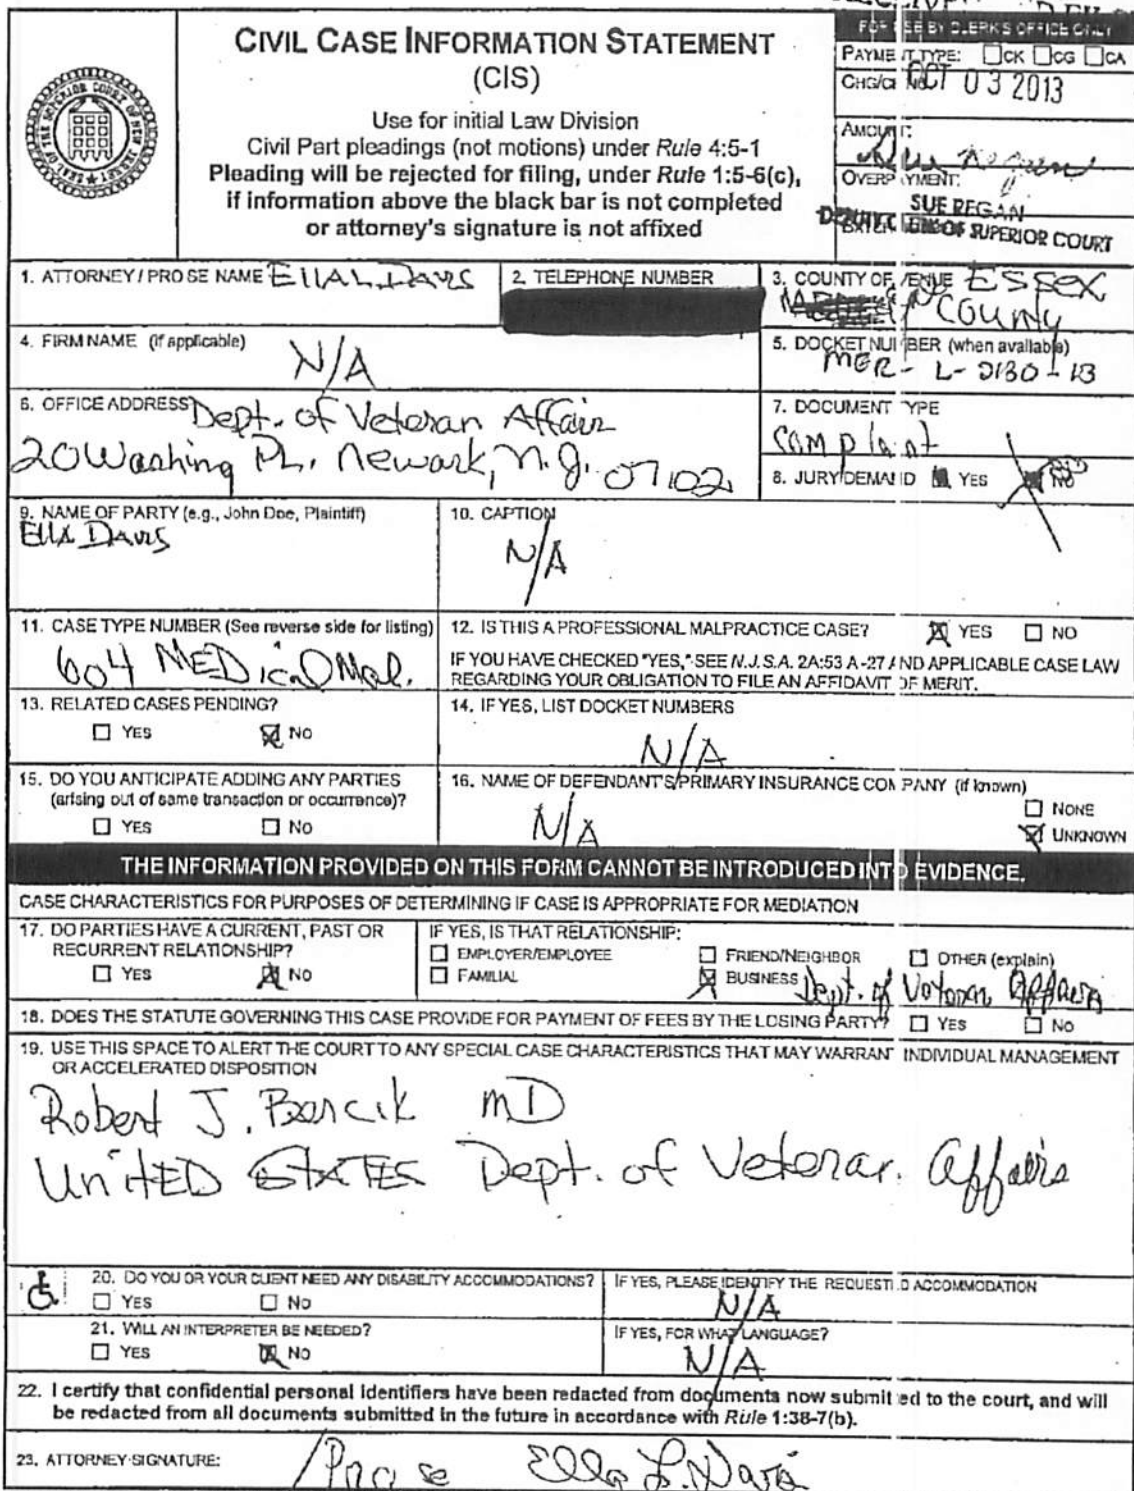 CIVIL CASE INFORMATION STATEMENT
(CIS)
Use for initial Law Division
Civil Part pleadings (not motions) under Rule 4:5-1
Pleading will be rejected for filing, under Rule 1:5-6(c),
if information above the black bar is not completed
or attorney's signature is not affixed
FOR USE BY CLERK'S OFFICE ONLY
PAYMENT TYPE: CK CG CA
CHG/CK NO.
OCT 03 2013
AMOUNT:
Sue Regan
OVERPAYMENT:
SUE REGAN
DEPUTY CLERK OF SUPERIOR COURT
1. ATTORNEY / PRO SE NAME Ella L. Davis
2. TELEPHONE NUMBER
3. COUNTY OF VENUE Essex
County
4. FIRM NAME (if applicable)
N/A
5. DOCKET NUMBER (when available)
MER - L - 2130 - 13
6. OFFICE ADDRESS Dept. of Veteran Affair
20 Washing PL. Newark, N.J. 07102
7. DOCUMENT TYPE
Complaint
8. JURY DEMAND YES NO
9. NAME OF PARTY (e.g., John Doe, Plaintiff)
Ella Davis
10. CAPTION
N/A
11. CASE TYPE NUMBER (See reverse side for listing)
604 MEDical Mal.
12. IS THIS A PROFESSIONAL MALPRACTICE CASE? YES NO
IF YOU HAVE CHECKED "YES," SEE N.J.S.A. 2A:53 A-27 AND APPLICABLE CASE LAW
REGARDING YOUR OBLIGATION TO FILE AN AFFIDAVIT OF MERIT.
13. RELATED CASES PENDING?
YES NO
14. IF YES, LIST DOCKET NUMBERS
N/A
15. DO YOU ANTICIPATE ADDING ANY PARTIES
(arising out of same transaction or occurrence)?
YES NO
16. NAME OF DEFENDANT'S PRIMARY INSURANCE COMPANY (if known)
N/A
NONE
UNKNOWN
THE INFORMATION PROVIDED ON THIS FORM CANNOT BE INTRODUCED INTO EVIDENCE.
CASE CHARACTERISTICS FOR PURPOSES OF DETERMINING IF CASE IS APPROPRIATE FOR MEDIATION
17. DO PARTIES HAVE A CURRENT, PAST OR
RECURRENT RELATIONSHIP?
YES NO
IF YES, IS THAT RELATIONSHIP:
EMPLOYER/EMPLOYEE FRIEND/NEIGHBOR OTHER (explain)
FAMILIAL BUSINESS Dept. of Veteran Affairs
18. DOES THE STATUTE GOVERNING THIS CASE PROVIDE FOR PAYMENT OF FEES BY THE LOSING PARTY? YES NO
19. USE THIS SPACE TO ALERT THE COURT TO ANY SPECIAL CASE CHARACTERISTICS THAT MAY WARRANT INDIVIDUAL MANAGEMENT
OR ACCELERATED DISPOSITION
Robert J. Bercik MD
UnitED STATES Dept. of Veteran Affairs
20. DO YOU OR YOUR CLIENT NEED ANY DISABILITY ACCOMMODATIONS?
YES NO
IF YES, PLEASE IDENTIFY THE REQUESTED ACCOMMODATION
N/A
21. WILL AN INTERPRETER BE NEEDED?
YES NO
IF YES, FOR WHAT LANGUAGE?
N/A
22. I certify that confidential personal identifiers have been redacted from documents now submitted to the court, and will
be redacted from all documents submitted in the future in accordance with Rule 1:38-7(b).
23. ATTORNEY SIGNATURE: /Pro se Ella L. Davis